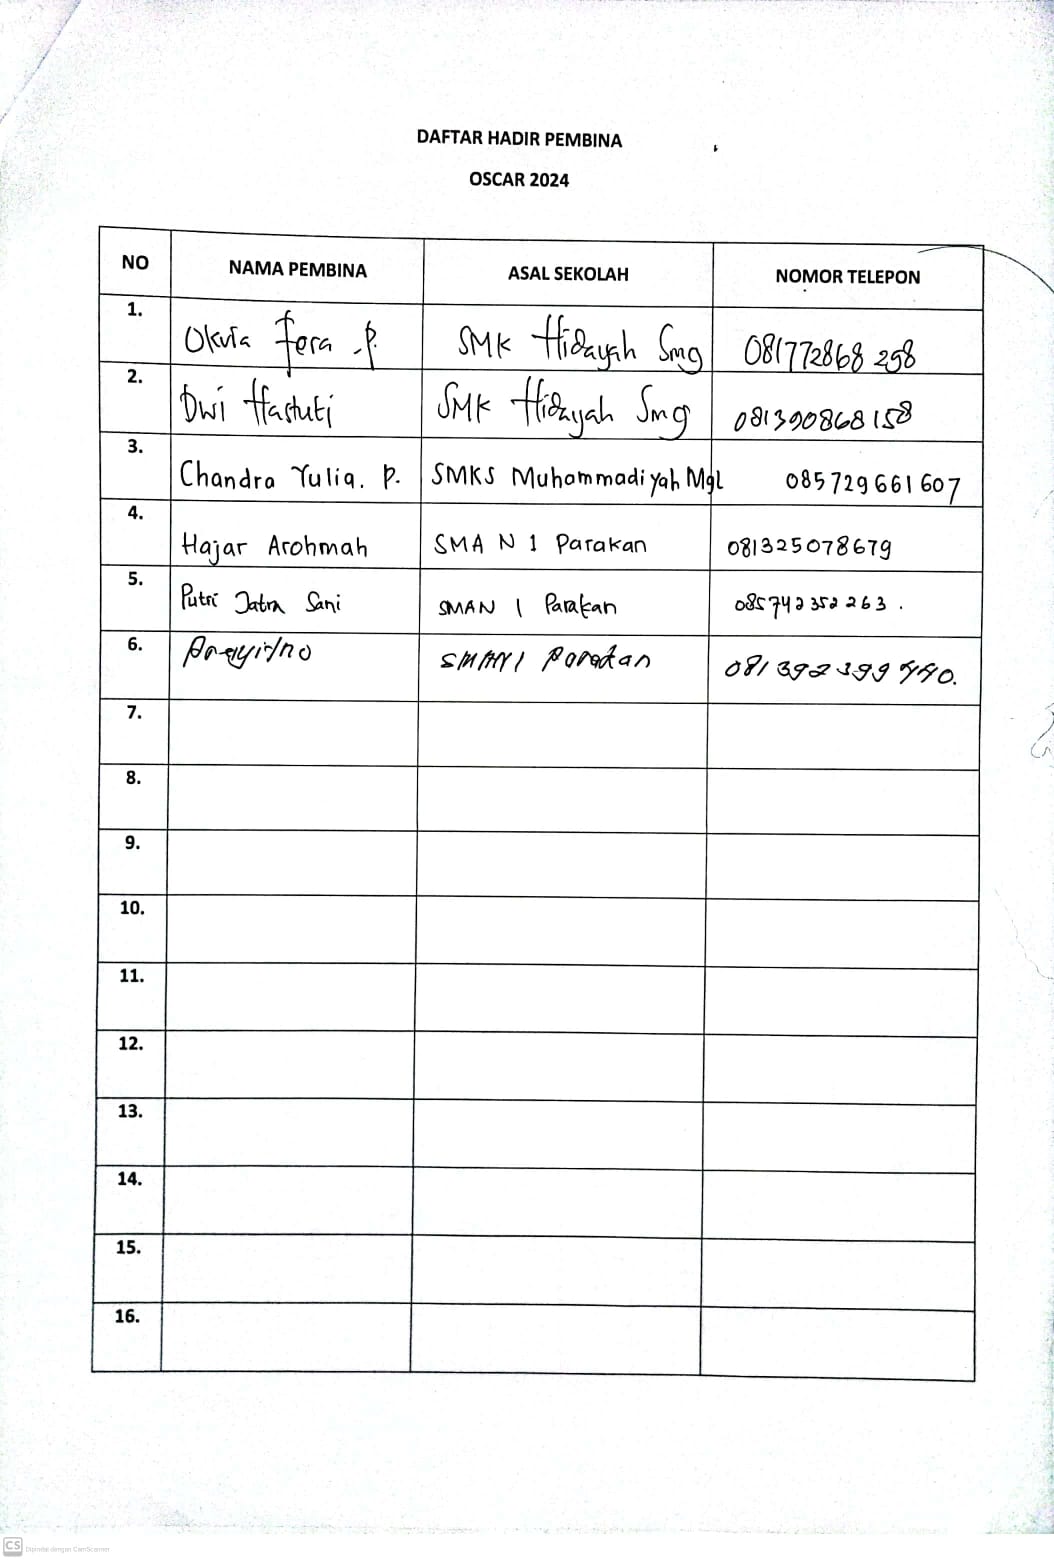 DAFTAR HADIR PEMBINA
OSCAR 2024
NO NAMA PEMBINA ASAL SEKOLAH NOMOR TELEPON
1. Okvia Fera .P. SMK Hidayah Smg 081772868 258
2. Dwi Hastuti SMK Hidayah Smg 081390868158
3. Chandra Yulia. P. SMKS Muhammadiyah Mgl 085729661607
4. Hajar Arohmah SMA N 1 Parakan 081325078679
5. Putri Jatra Sani SMAN 1 Parakan 085742352263.
6. Prayitno SMAN1 Parakan 081392399440.
7.
8.
9.
10.
11.
12.
13.
14.
15.
16.
CS Dipindai dengan CamScanner